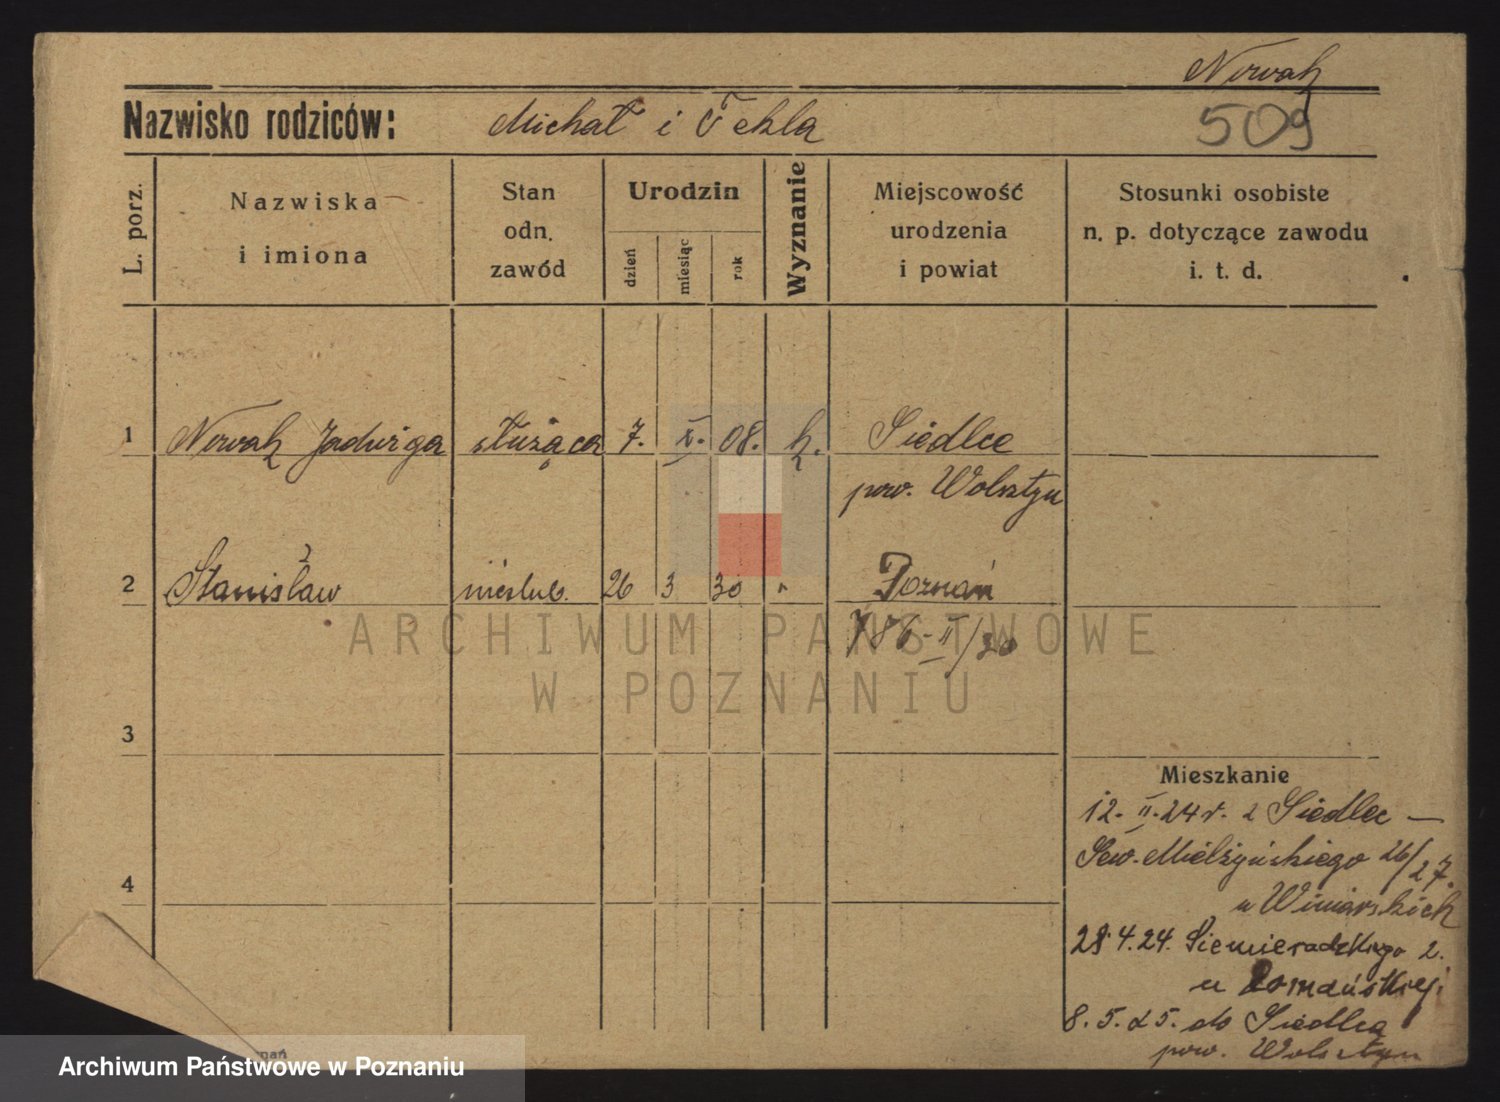 Nowak
Nazwisko rodziców: Michał i Tekla
509
L. porz.
Nazwiska
i imiona
Stan
odn.
zawód
Urodzin
dzień
miesiąc
rok
Wyznanie
Miejscowość
urodzenia
i powiat
Stosunki osobiste
n. p. dotyczące zawodu
i. t. d.
1 Nowak Jadwiga służąca 7. X. 08. k. Siedlce
pow. Wolsztyn
2 Stanisław nieślub. 26 3 30 " Poznań
786-II/30
ARCHIWUM PAŃSTWOWE
W POZNANIU
3
Mieszkanie
12. II. 24 r. z Siedlec —
Sew. Mielżyńskiego 26/27.
u Winiarskich
4
28.4.24. Siemieradzkiego 2.
u
8. 5. 25. do Siedlca
pow. Wolsztyn
Archiwum Państwowe w Poznaniu